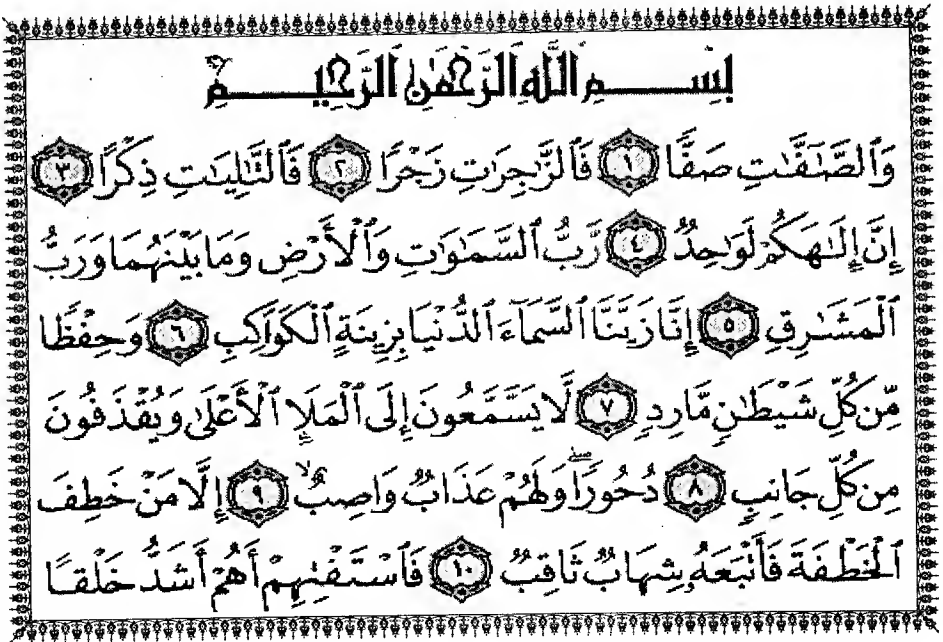 بِسْمِ ٱللَّهِ ٱلرَّحْمَٰنِ ٱلرَّحِيمِ
وَٱلصَّٰٓفَّٰتِ صَفًّا ١ فَٱلزَّٰجِرَٰتِ زَجْرًا ٢ فَٱلتَّٰلِيَٰتِ ذِكْرًا ٣
إِنَّ إِلَٰهَكُمْ لَوَٰحِدٌ ٤ رَّبُّ ٱلسَّمَٰوَٰتِ وَٱلْأَرْضِ وَمَا بَيْنَهُمَا وَرَبُّ
ٱلْمَشَٰرِقِ ٥ إِنَّا زَيَّنَّا ٱلسَّمَآءَ ٱلدُّنْيَا بِزِينَةٍ ٱلْكَوَاكِبِ ٦ وَحِفْظًا
مِّن كُلِّ شَيْطَٰنٍ مَّارِدٍ ٧ لَّا يَسَّمَّعُونَ إِلَى ٱلْمَلَإِ ٱلْأَعْلَىٰ وَيُقْذَفُونَ
مِن كُلِّ جَانِبٍ ٨ دُحُورًا ۖ وَلَهُمْ عَذَابٌ وَاصِبٌ ٩ إِلَّا مَنْ خَطِفَ
ٱلْخَطْفَةَ فَأَتْبَعَهُۥ شِهَابٌ ثَاقِبٌ ١٠ فَٱسْتَفْتِهِمْ أَهُمْ أَشَدُّ خَلْقًا